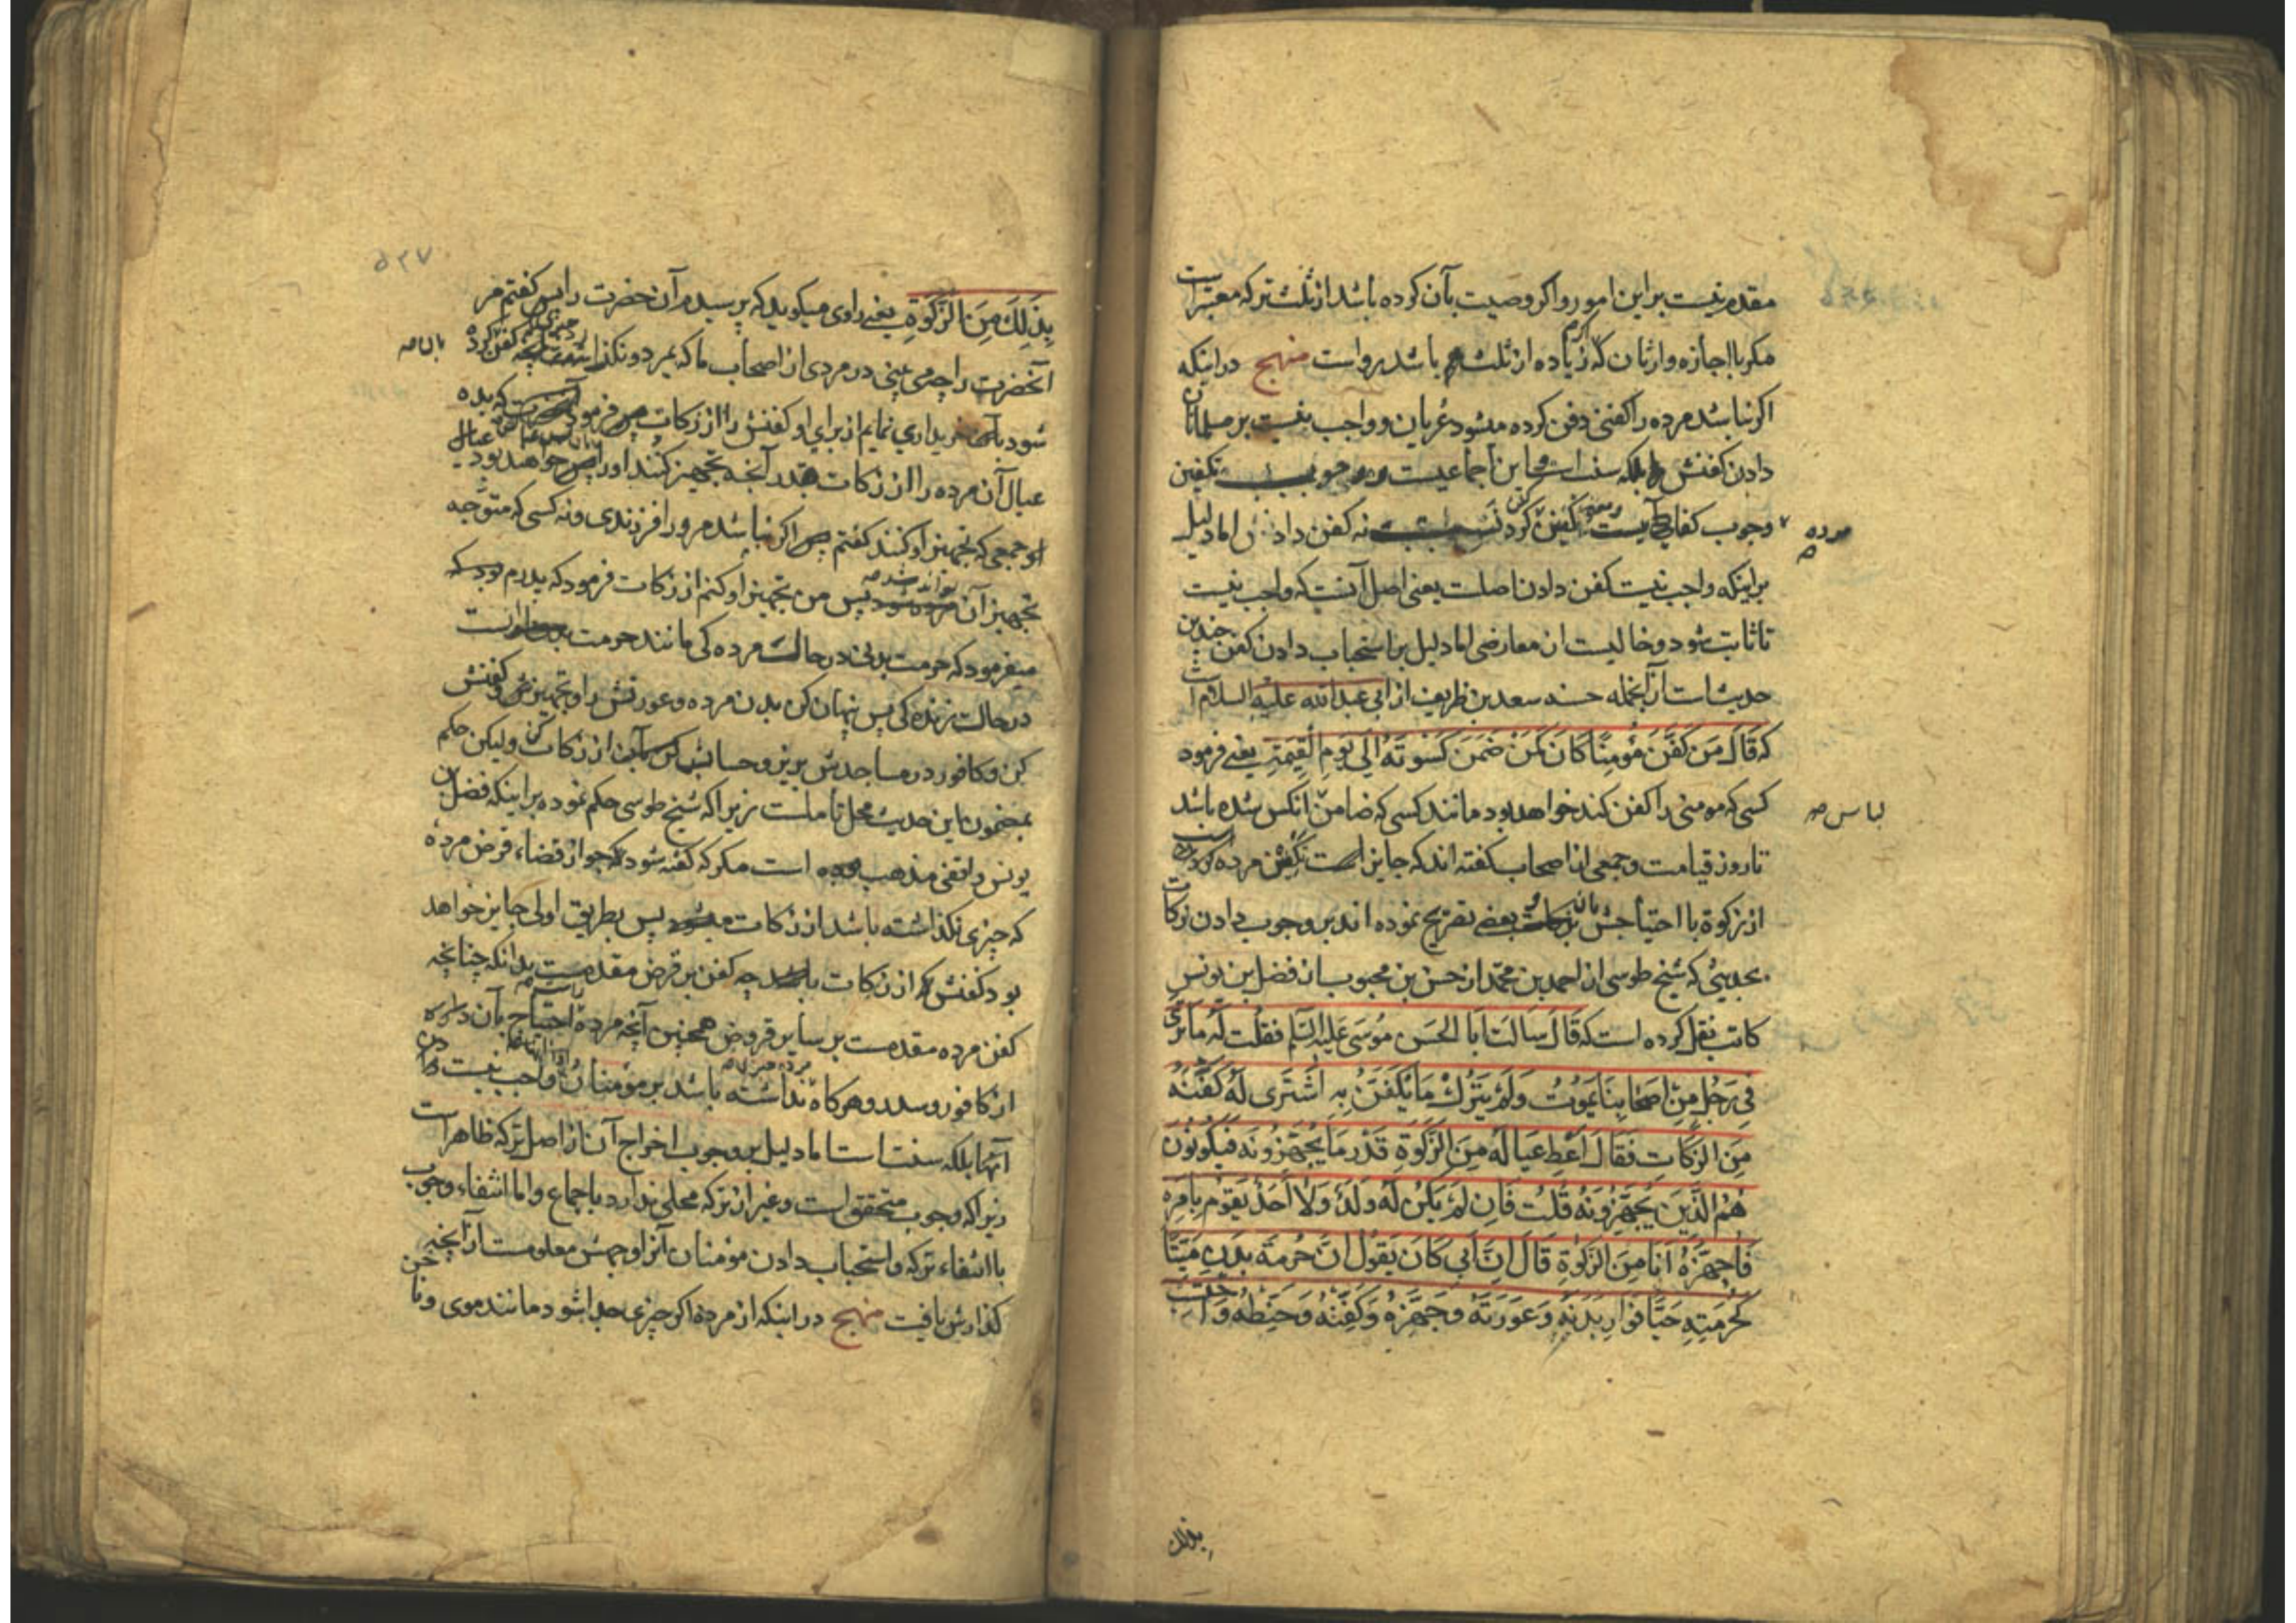 مقدم نیست بر این امور و اکر وصیت بآن کرده باشد از ثلث ترکه معتبر است
مکر با اجازه وارثان که زیاده از ثلث هم باشد رواست منهج در اینکه
اکر نباشد مرده را کفنی دفن کرده میشود عریان و واجب نیست بر مسلمانان
دادن کفنش بلکه سنت است و این اجماعیست تکفین
مرده
وجوب کفایی نه کفن دادنش اما دلیل
بر اینکه واجب نیست کفن دادن اصلت یعنی اصل آنست که واجب نیست
تا ثابت شود و خالیست از معارضی اما دلیل بر استحباب دادن کفن چندین
حدیث است از آنجمله حسنه سعد بن ظریف از ابی عبدالله علیه السلام است
که قَالَ مَن كَفَّنَ مُؤمِنًا كَانَ كَمَنْ ضَمَنَ كِسْوَتَهُ اِلَی یَومِ القِیمَةِ یعنی فرمود
کسی که مومنی را کفن کند خواهد بود مانند کسی که ضامن انکس شده باشد
لباس صه
تا روز قیامت و جمعی از اصحاب کفته اند که جایز است تکفین مرده
از زکوة با احتیاجش بآن بعضی تصریح نموده اند بر وجوب دادن زکات
بحدیثی که شیخ طوسی از احمد بن محمد از حسن بن محبوب از فضل بن یونس
کاتب نقل کرده است که قَالَ سَالتُ اَبَا الحَسَن مُوسَی عَلیهِ السَّلم فَقُلتُ لَهُ مَا تَرَی
فِی رَجُلٍ مِن اَصحَابِنَا یَمُوتُ وَلَم یَترُك مَا یُكَفَّنُ بِهِ اَشتَری لَهُ كَفَنَهُ
مِنَ الزَّكَاتِ فَقَالَ اَعطِ عِیَالَهُ مِنَ الزَّكوةِ قَدرَ مَا یُجَهِّزُونَه فَیَكُونُونَ
هُمُ الَّذِینَ یُجَهِّزُونَهُ قُلتُ فَاِن لَم یَكُن لَهُ وَلَدٌ وَلَا اَحَدٌ یَقُومُ بِاَمرِهِ
فَاُجَهِّزُهُ اَنَا مِنَ الزَّكوةِ قَالَ اِنَّ اَبِی كَانَ یَقُولُ اِنَّ حُرمَةَ بَدَنِ مَیِّتًا
كَحُرمَتِهِ حَیًّا فَوَارِ بَدَنَهِ وَعَورَتَهُ وَجَهِّزهُ وَكَفِّنهُ وَحَنِّطهُ وَاحْتَسِبْ
بذلك
۵۲۷
بِذَلِكَ مِنَ الزَّكوةِ یعنی راوی میکوید که پرسیدم آن حضرت را پس کفتم مر
آنحضرت را چه می بینی در مردی از اصحاب ما که بمرد و نکذا کفن کرده
شود بآن خریداری نمایم از برای او کفنش را از زکات فرمود که بده
عیال آن مرده را از زکات بقدر آنچه تجهیز کنند او را عیال
او جمعی که تجهیز او کنند کفتم اکر نباشد مر او را فرزندی و نه کسی که متوجه
تجهیز آن پس من تجهیز او کنم از زکات فرمود که پدرم
میفرمود که حرمت بدنی در حالت مرده کی مانند حرمت
در حالت زنده کی پس پنهان کن بدن مرده و عورتش را و تجهیزش و کفنش
کن و کافور در مساجدش بریز و حساب کن از زکات ولیکن حکم
بمضمون این حدیث محل تأملست زیرا که شیخ طوسی حکم نموده بر اینکه فضل بن
یونس واقفی مذهب است مکر که کفته شود که جواز قضاء قرض مرده
که چیزی نکذاشته باشد از زکات پس بطریق اولی جایز خواهد
بود کفنش از زکات چه کفن بر قرض مقدمست بدانکه چنانچه
کفن مرده مقدمست بر سایر قروض همچنین آنچه مرده احتیاج بآن دارد
از کافور و سدر و هر کاه نداشته باشد بر مؤمنان واجب نیست دادن
آنها بلکه سنت است اما دلیل بر وجوب اخراج آن از اصل ترکه ظاهر است
زیرا که وجوب متحقق است و غیر از ترکه محلی ندارد باجماع و اما انتفاء وجوب
با انتفاء ترکه و استحباب دادن مؤمنان آنرا وجهش معلومست از آنچه
کذارش یافت منهج در اینکه از مرده اکر چیزی جدا شود مانند موی و ناخن